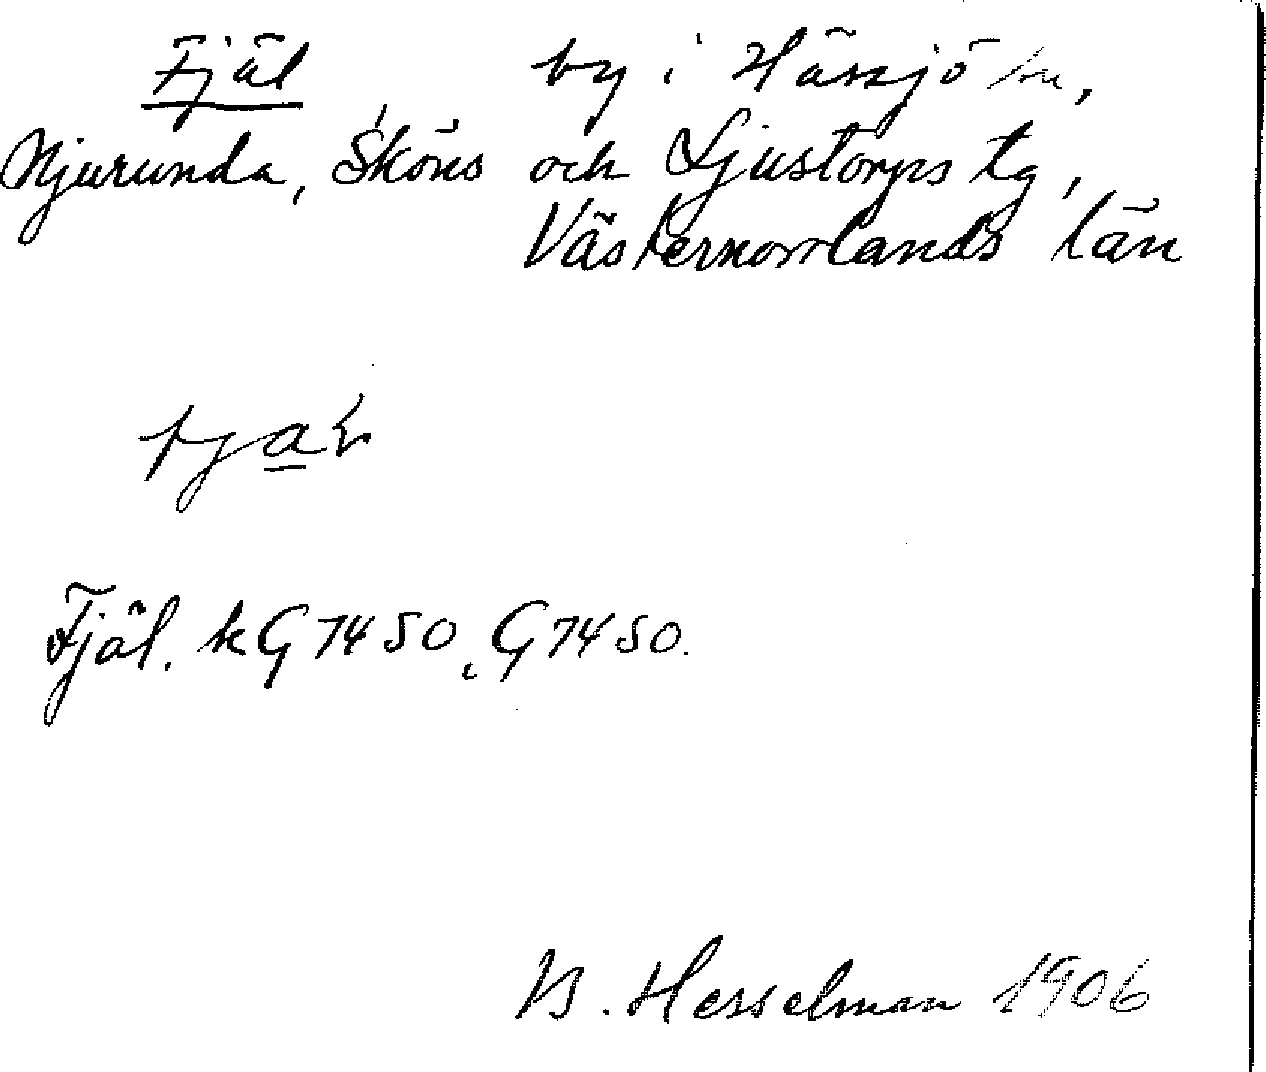 Fjäl by i Hässjö sn,
Njurunda, Sköns och Ljustorps tg,
Västernorrlands län
Fjäl. kG7450, G7450.
B. Hesselman 1906